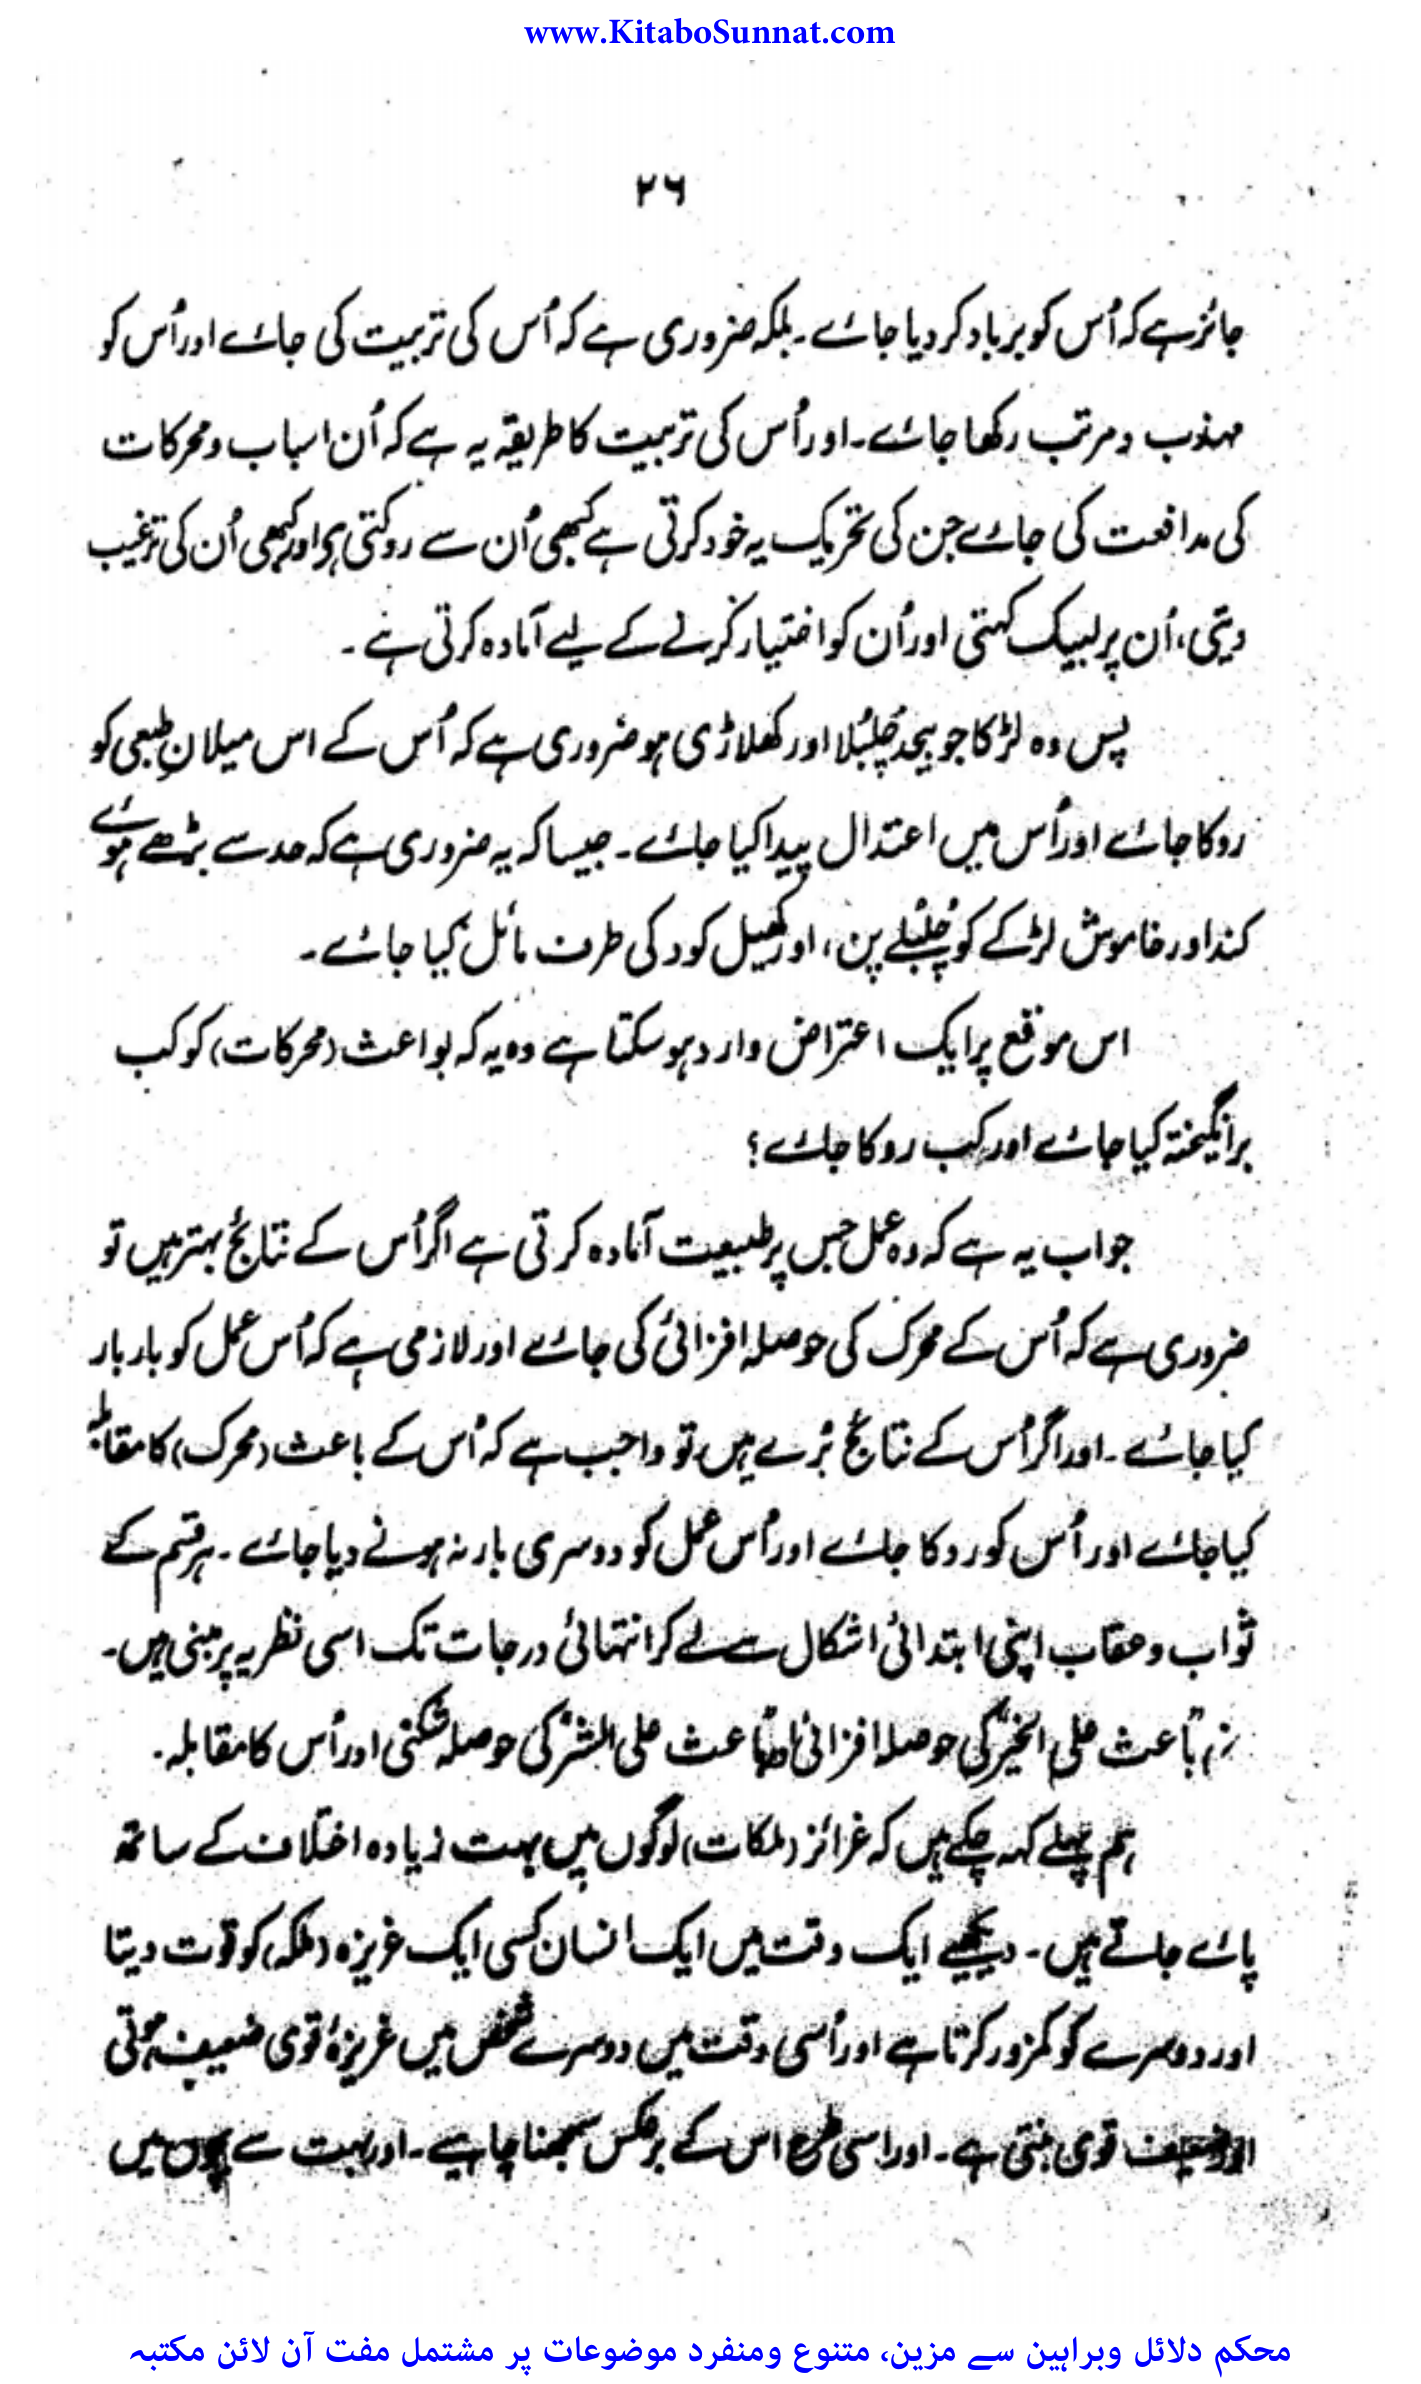 www.KitaboSunnat.com
۲۶
جائز ہے کہ اُس کو برباد کر دیا جائے۔ بلکہ ضروری ہے کہ اُس کی تربیت کی جائے اور اُس کو
مہذب و مرتب رکھا جائے۔ اور اُس کی تربیت کا طریقہ یہ ہے کہ اُن اسباب و محرکات
کی مدافعت کی جائے جن کی تحریک یہ خود کرتی ہے کبھی اُن سے روکتی ہے اور کبھی اُن کی ترغیب
دیتی، اُن پر لبیک کہتی اور اُن کو اختیار کرنے کے لیے آمادہ کرتی ہے۔
پس وہ لڑکا جو بیحد چُلبُلا اور کھلاڑی ہو ضروری ہے کہ اُس کے اس میلانِ طبعی کو
روکا جائے اور اُس میں اعتدال پیدا کیا جائے۔ جیسا کہ یہ ضروری ہے کہ حد سے بڑھے ہوئے
کند اور خاموش لڑکے کو چُلبُلے پن، اور کھیل کود کی طرف مائل کیا جائے۔
اس موقع پر ایک اعتراض وارد ہو سکتا ہے وہ یہ کہ بواعث (محرکات) کو کب
برانگیختہ کیا جائے اور کب روکا جائے؟
جواب یہ ہے کہ وہ عمل جس پر طبیعت آمادہ کرتی ہے اگر اُس کے نتائج بہتر ہیں تو
ضروری ہے کہ اُس کے محرک کی حوصلہ افزائی کی جائے اور لازمی ہے کہ اُس عمل کو بار بار
کیا جائے۔ اور اگر اُس کے نتائج بُرے ہیں تو واجب ہے کہ اُس کے باعث (محرک) کا مقابلہ
کیا جائے اور اُس کو روکا جائے اور اُس عمل کو دوسری بار نہ ہونے دیا جائے۔ ہر قسم کے
ثواب و عقاب اپنی ابتدائی اشکال سے لے کر انتہائی درجات تک اسی نظریہ پر مبنی ہیں۔
"باعث علی الخیر" کی حوصلہ افزائی اور "باعث علی الشر" کی حوصلہ شکنی اور اُس کا مقابلہ۔
ہم پہلے کہہ چکے ہیں کہ غرائز (ملکات) لوگوں میں بہت زیادہ اختلاف کے ساتھ
پائے جاتے ہیں۔ دیکھیے ایک وقت میں ایک انسان کسی ایک غریزہ (ملکہ) کو قوت دیتا
اور دوسرے کو کمزور کرتا ہے اور اُسی وقت میں دوسرے شخص میں غریزۂ قوی ضعیف ہوتی
اور ضعیف قوی بنتی ہے۔ اور اسی طرح اس کے برعکس سمجھنا چاہیے۔ اور بہت سے میں
محکم دلائل وبراہین سے مزین، متنوع ومنفرد موضوعات پر مشتمل مفت آن لائن مکتبہ